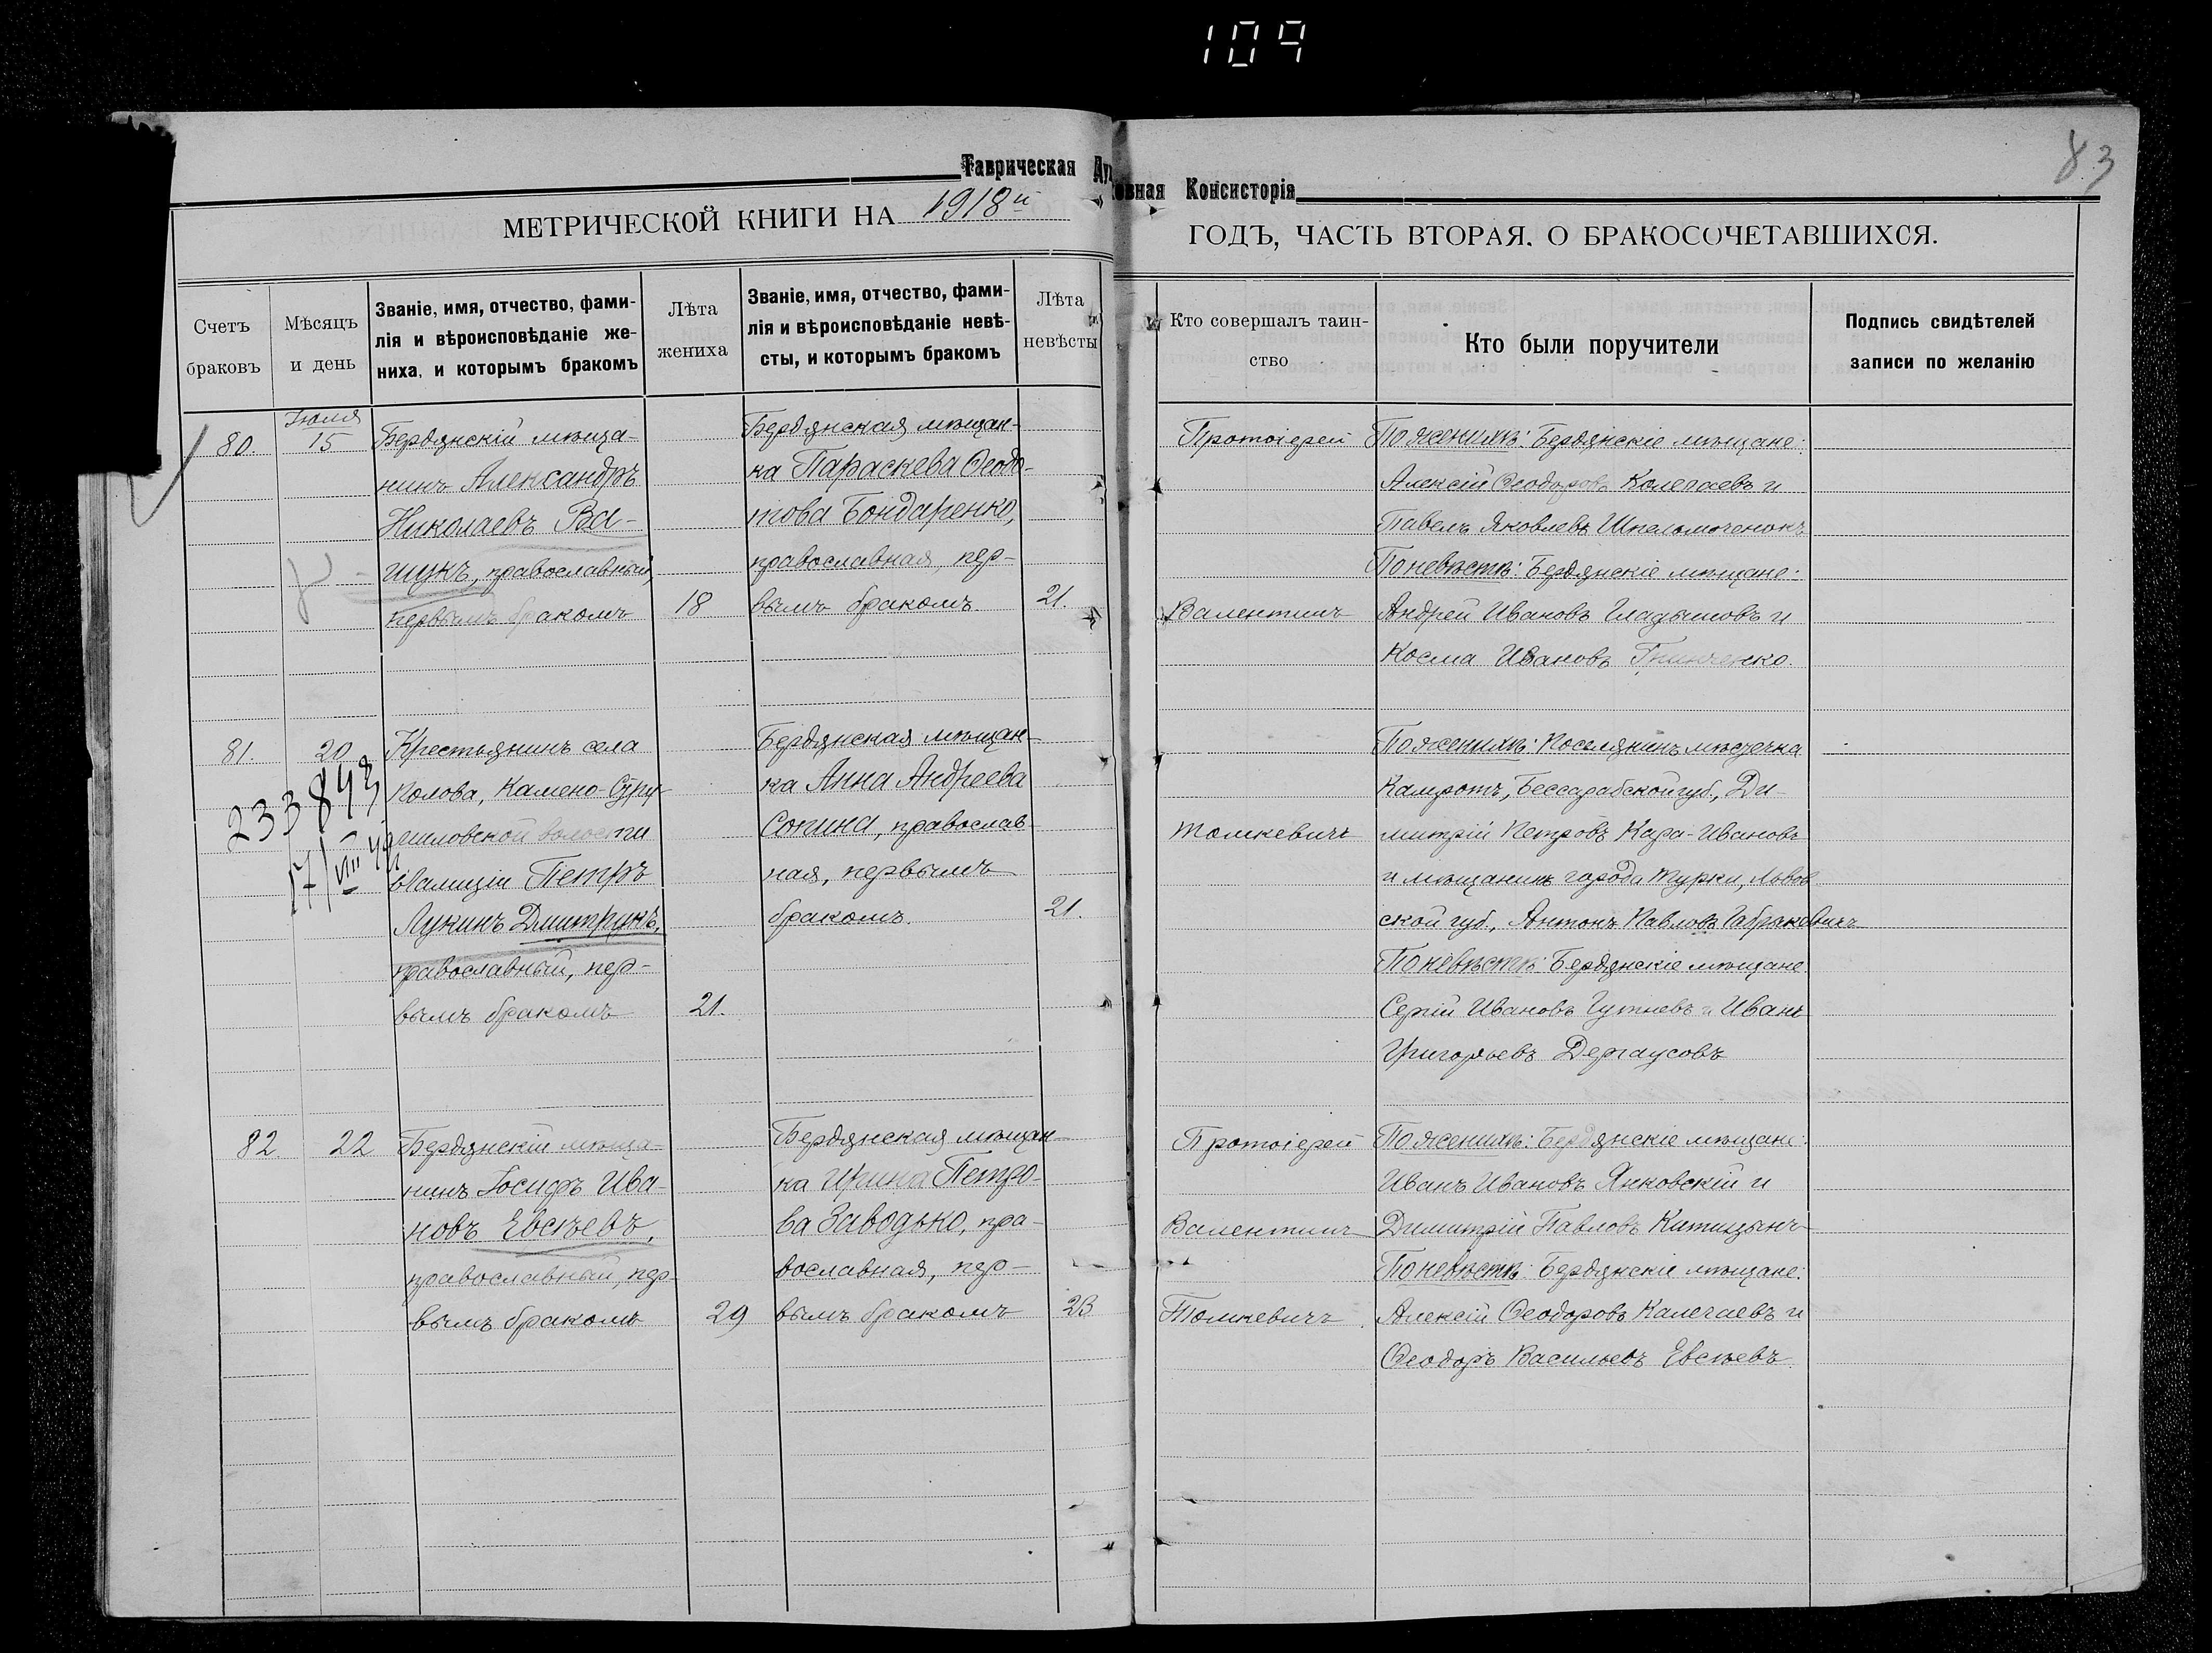 109
83
Таврическая Духовная Консисторія
МЕТРИЧЕСКОЙ КНИГИ НА 1918й ГОДЪ, ЧАСТЬ ВТОРАЯ, О БРАКОСОЧЕТАВШИХСЯ.
Счетъ
браковъ
Мѣсяцъ
и день
Званіе, имя, отчество, фами-
лія и вѣроисповѣданіе же-
ниха, и которымъ бракомъ
Лѣта
жениха
Званіе, имя, отчество, фами-
лія и вѣроисповѣданіе невѣ-
сты, и которымъ бракомъ
Лѣта
невѣсты
Кто совершалъ таин-
ство
Кто были поручители
Подпись свидѣтелей
записи по желанію
80.
Іюля
15
Бердянскій мѣща-
нинъ Александръ
Николаевъ Ва-
щукъ, православный,
первымъ бракомъ
18
Бердянская мѣщан-
ка Параскева Ѳеодо-
това Бондаренко,
православная, пер-
вымъ бракомъ
21.
Протоіерей
Валентинъ
Томкевичъ
По женихѣ: Бердянскіе мѣщане:
Алексій Ѳеодоровъ Колегаевъ и
Павелъ Яковлевъ
По невѣстѣ: Бердянскіе мѣщане:
Андрей Ивановъ и
Косма Ивановъ Гринченко.
81.
20
233843
17/VIII
Крестьянинъ села
Колова, Камено-Стру-
миловской волости
Галиціи Петръ
Лукинъ Дмитрукъ,
православный, пер-
вымъ бракомъ
21.
Бердянская мѣщан-
ка Анна Андреева
Сонина, православ-
ная, первымъ
бракомъ.
21.
По женихѣ: Поселянинъ мѣстечка
Камротъ, Бессарабской губ., Ди-
митрій Петровъ Кара-Ивановъ
и мѣщанинъ города Турки, Львов-
ской губ., Антонъ Павловъ
По невѣстѣ: Бердянскіе мѣщане
Сергій Ивановъ и Иванъ
Григорьевъ
82
22
Бердянскій мѣща-
нинъ Іосифъ Ива-
новъ Евсѣевъ,
православный, пер-
вымъ бракомъ
29
Бердянская мѣщан-
ка Ирина Петро-
ва Заводько, пра-
вославная, пер-
вымъ бракомъ
23
Протоіерей
Валентинъ
Томкевичъ
По женихѣ: Бердянскіе мѣщане:
Иванъ Ивановъ Янковскій и
Димитрій Павловъ
По невѣстѣ: Бердянскіе мѣщане:
Алексій Ѳеодоровъ Калегаевъ и
Ѳеодоръ Васильевъ Евсѣевъ.